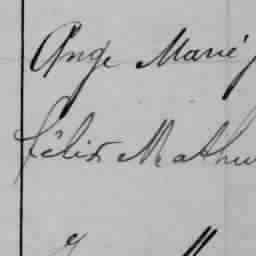 Ange Marie
Félix Mathu